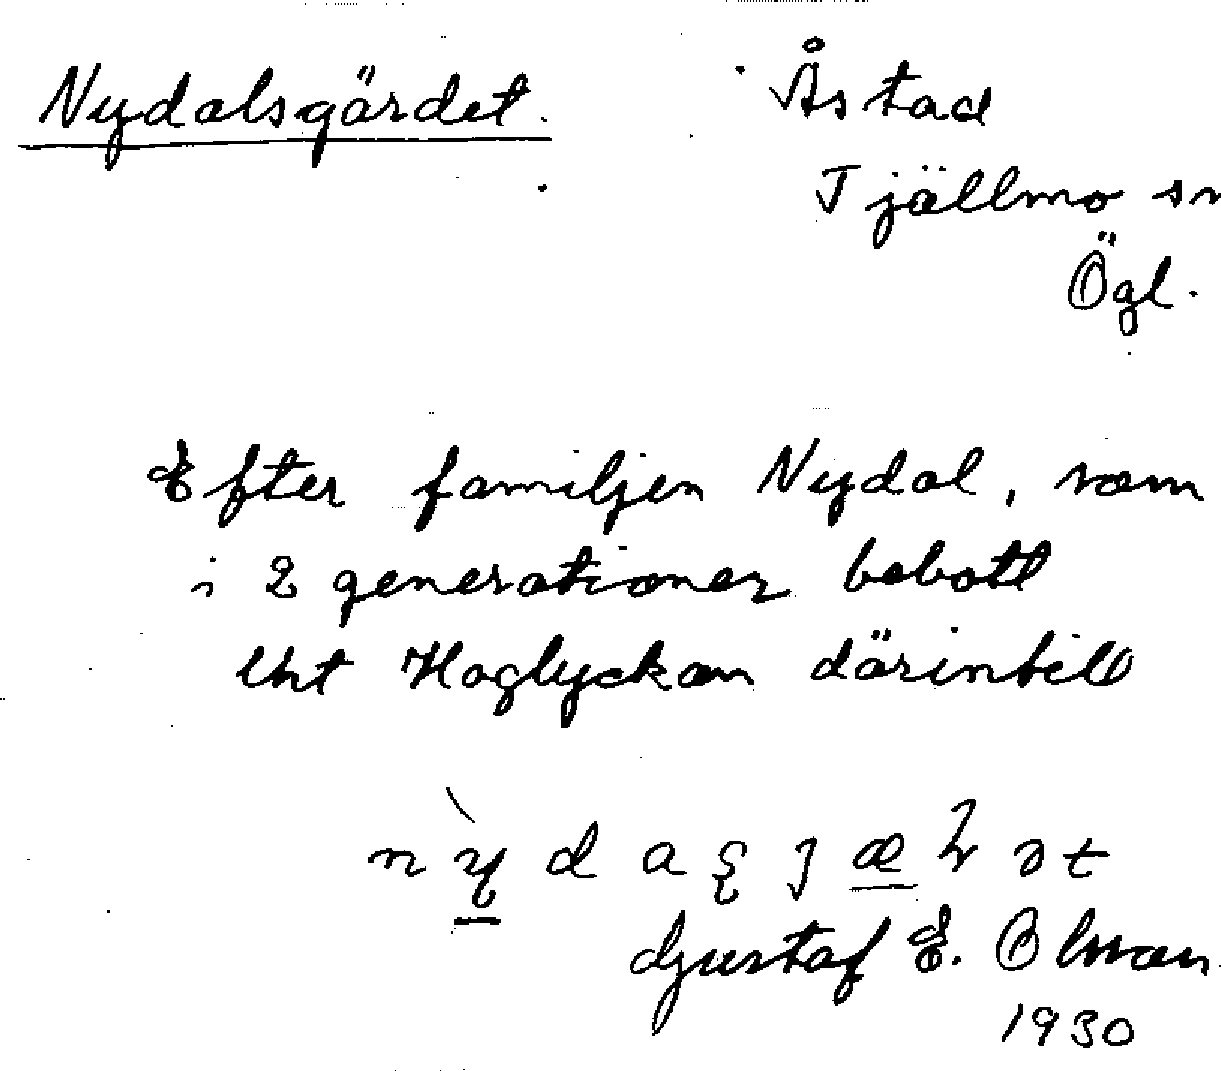 Nydalsgärdet. Åstad
Tjällmo sn
Ögl.
Efter familjen Nydal, som
i 2 generationer bebott
lht Haglyckan därintill
Gustaf E. Olsson
1930